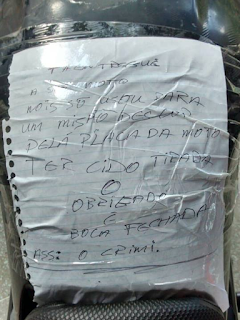 A SUA MOTO
NOIS SÓ USOU PARA
UM MISÃO DESCULP
DELA PLACA DA MOTO
TER CIDO TIRADA
O
OBRIGADO
E
BOCA FECHADA
ASS: O CRIMI.